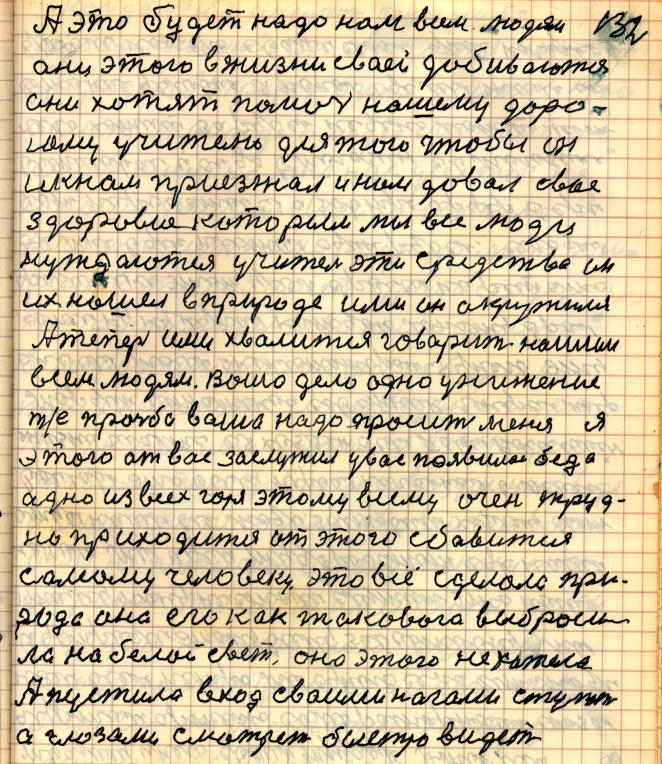 А это будет надо нам всем людям 132
они этого в жизни своей добиваются
они хотят помоч нашему доро-
гому учителю для того чтобы он
и к нам приезжал и нам довал свое
здоровие которым мы все люди
нуждаются учител эти средства он
их нашел в природе ими он окружился
А тепер ими хвалится говорит нашим
всем людям. Вашо дело одно унижение
т/е прозба ваша надо просит меня я
этого от вас заслужил у вас появилас беда
адно из всех горя этому всему очен труд-
но приходится от этого сбавится
самому человеку, это всё сделала при-
рода она его как такового выброси-
ла на белой свет, оно этого не хотела
А пустила вход своими нагами ступат
а глозами смотрет быстро видет